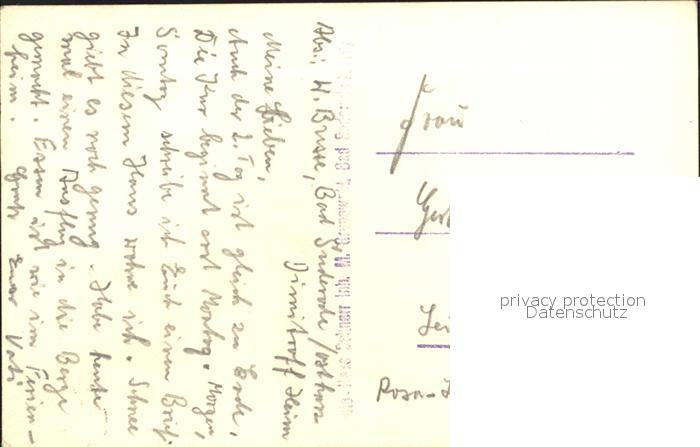 Abs.: H. Bruse, Bad Suderode / Ostharz
Dimitroff Heim
Meine Lieben,
Auch der 2. Tag ist gleich zu Ende.
Die Kur beginnt erst Montag. Morgen,
Sonntag schreibe ich Euch einen Brief.
In diesem Haus wohne ich. Schnee
giebt es noch genug. Habe heute
mal einen Ausflug in die Berge
gemacht. Essen ist wie im Ferien-
heim. Gruß Euer Vati
Frau
Rosa-
privacy protection
Datenschutz